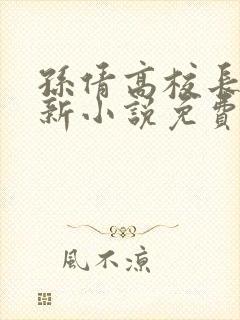 孫倩高校長
新小說免費
風不涼